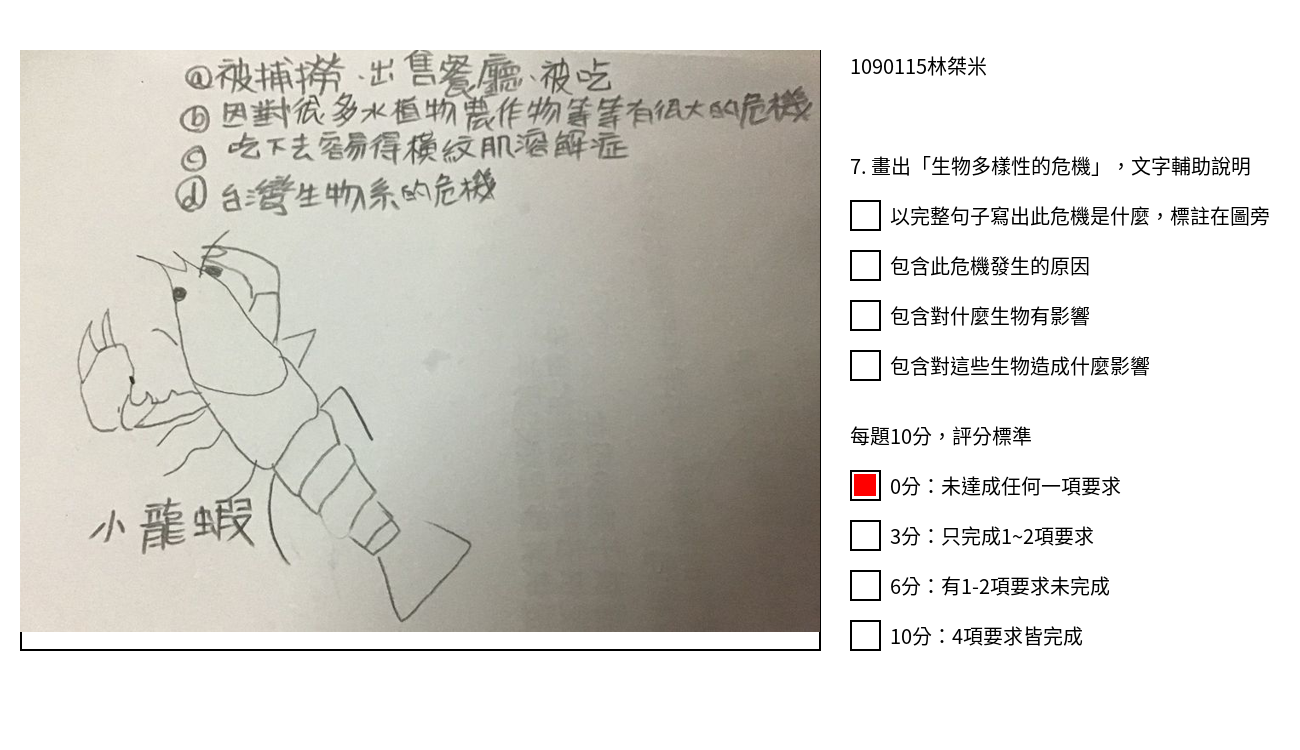 ⓐ被捕撈、出售餐廳、被吃
ⓑ因對很多水植物農作物等等有很大的危機
ⓒ吃下去容易得橫紋肌溶解症
ⓓ台灣生物系的危機
小龍蝦
1090115林桀米
7. 畫出「生物多樣性的危機」，文字輔助說明
以完整句子寫出此危機是什麼，標註在圖旁
包含此危機發生的原因
包含對什麼生物有影響
包含對這些生物造成什麼影響
每題10分，評分標準
0分：未達成任何一項要求
3分：只完成1~2項要求
6分：有1-2項要求未完成
10分：4項要求皆完成